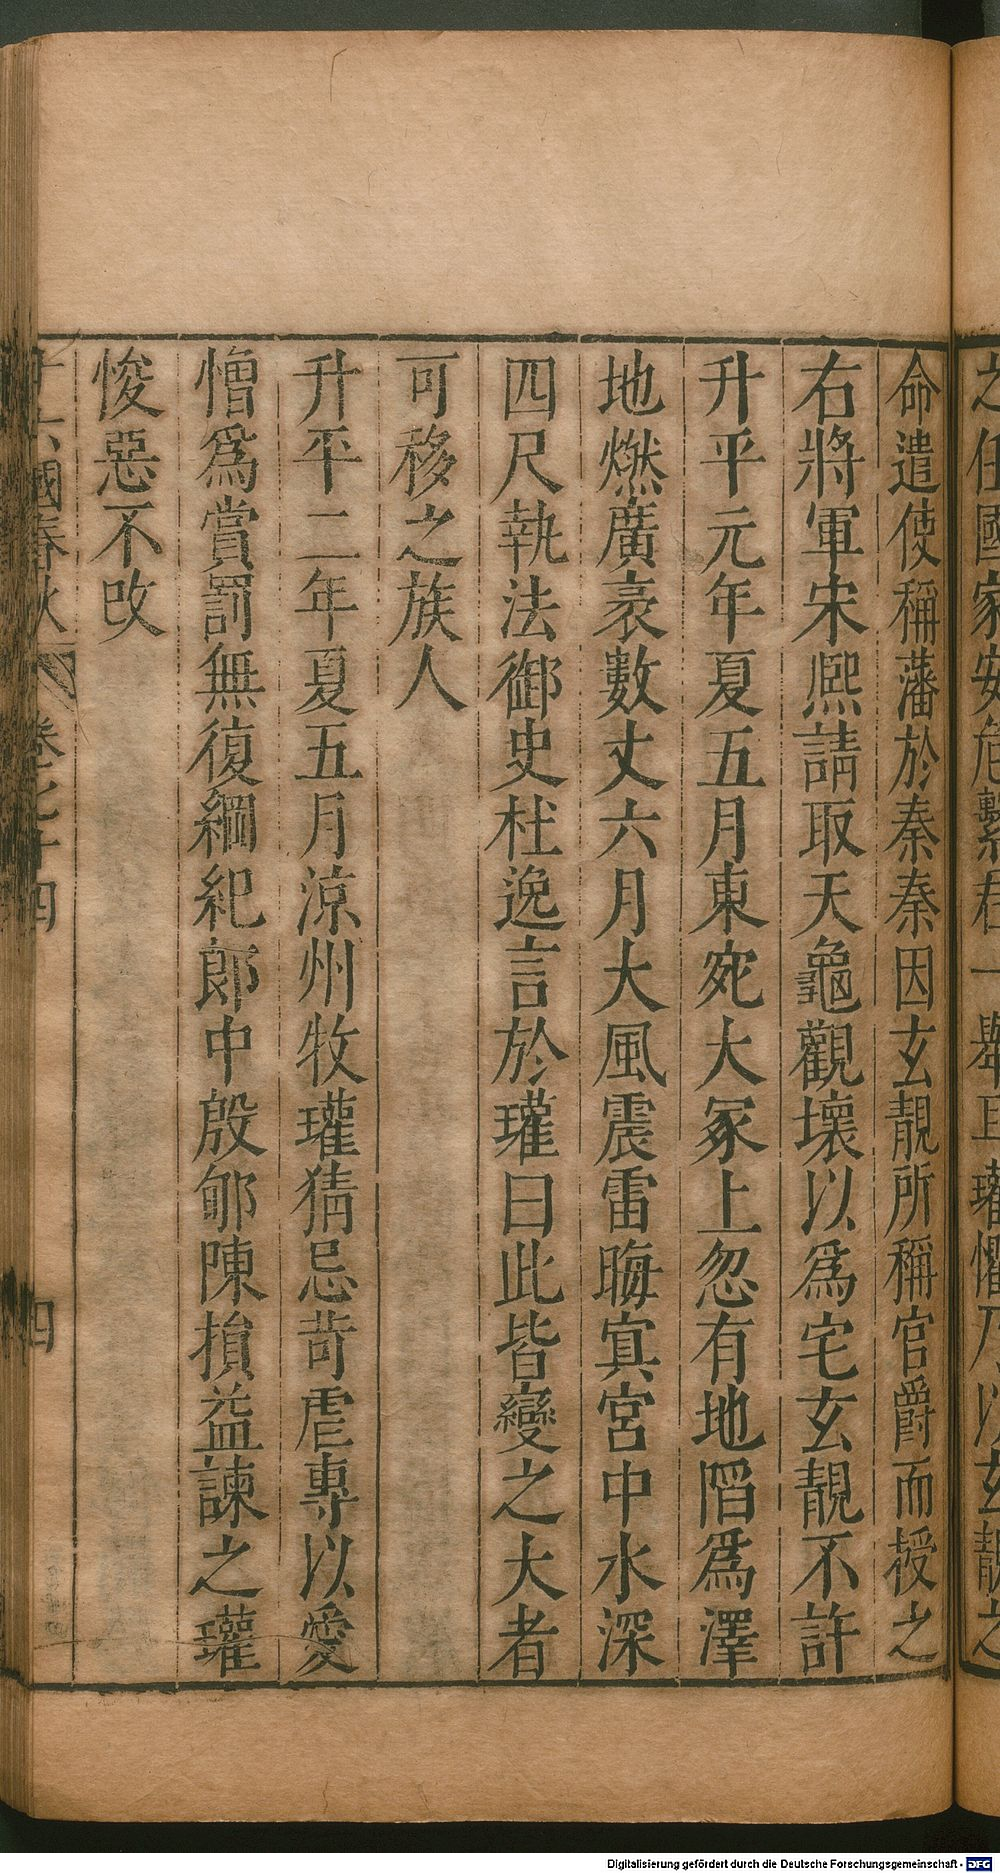 之任國家安危繫君一舉且瓘懼乃以玄靚之
命遣使稱藩於秦秦因玄靚所稱官爵而授之
右將軍宋熙請取天龜觀壞以爲宅玄靚不許
升平元年夏五月東宛大冢上忽有地䧟爲澤
地燃廣袤數丈六月大風震雷晦寘宮中水深
四尺執法御史杜逸言於瓘曰此皆變之大者
可移之族人
升平二年夏五月涼州牧瓘猜忌苛虐專以愛
憎爲賞罰無復綱紀郎中殷郇陳損益諫之瓘
悛惡不改
十六國春秋 卷七十四 四
Digitalisierung gefördert durch die Deutsche Forschungsgemeinschaft - DFG